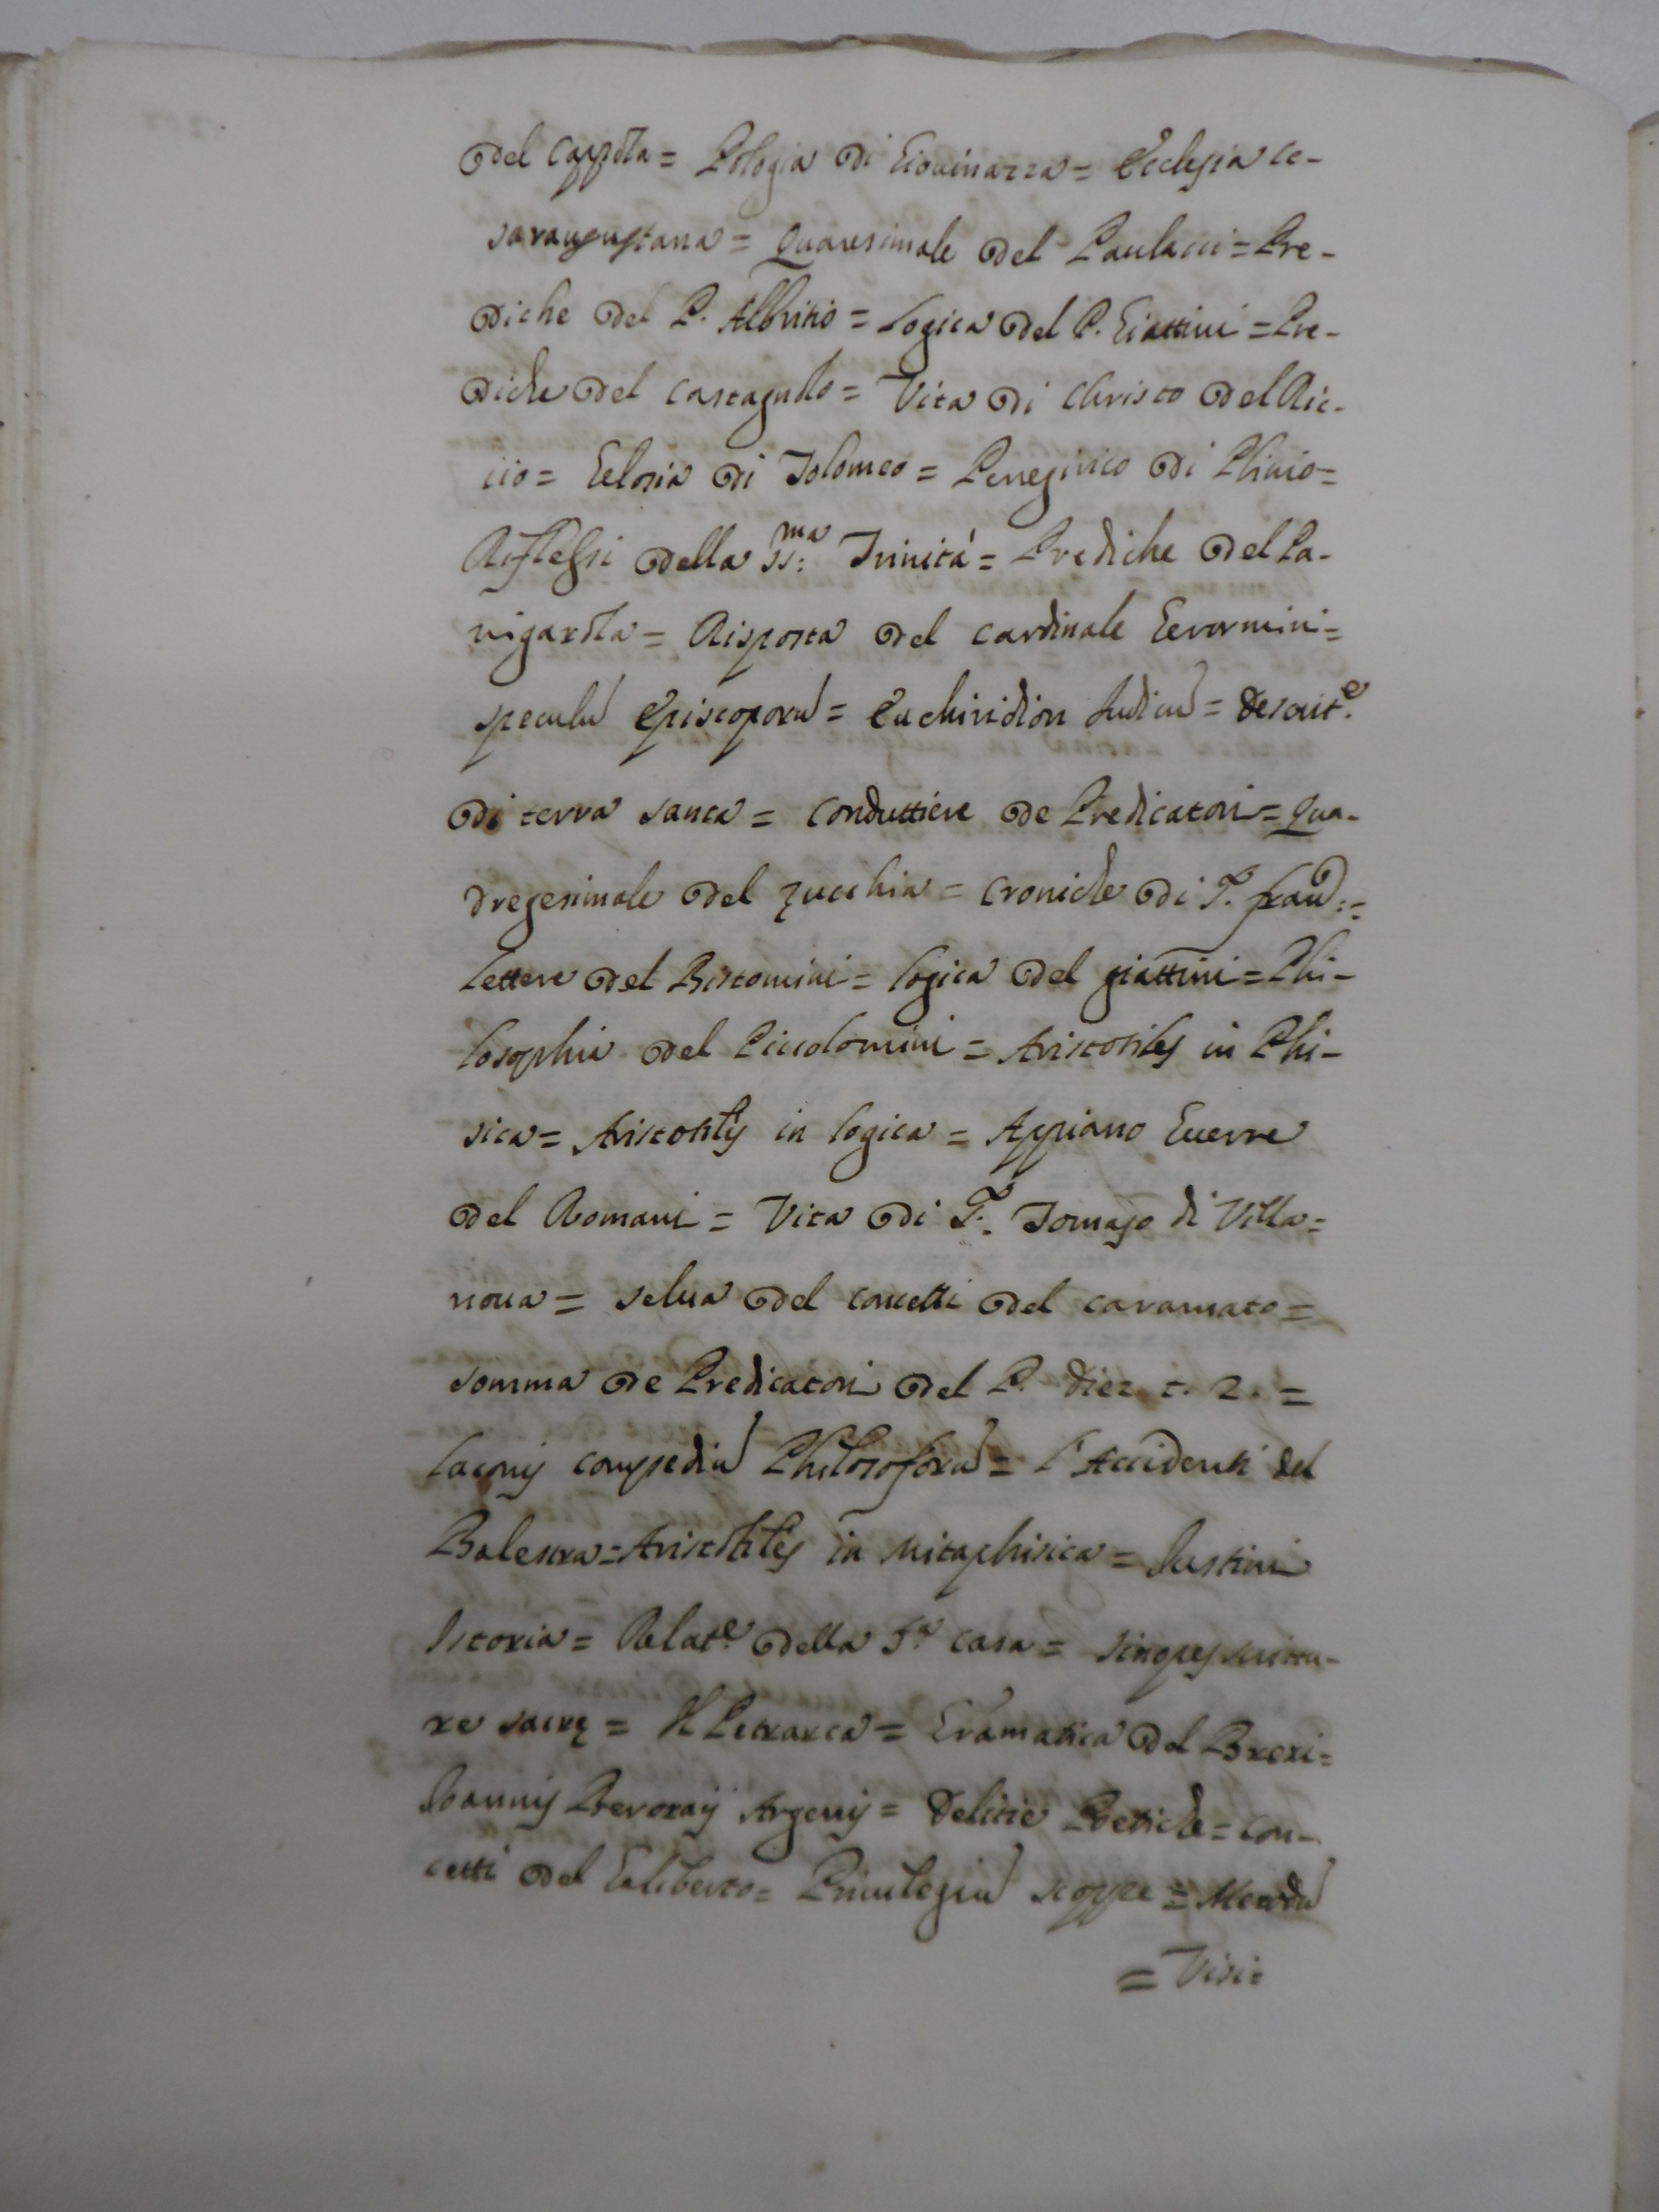 del Cappōla = Pologia di Giovinazza = Ecclesia ce-
saraugustana = Quaresimale del Paulacci = Pre-
diche del P. Albritio = Logica del P. Giattini = Pre-
diche del Castagnolo = Vita di Christo del Ric-
cio = Gelosia di Tolomeo = Penegirico di Plinio =
Riflessi della SS:ma Trinità = Prediche del Pa-
nigarōla = Risposta del Cardinale Geromini =
speculū Episcoporū = Enchiridion Iudicū = descrit.e
di terra santa = Conduttiere de Predicatori = Qua-
dregesimale del Zucchia = Croniche di S. Fran: =
Lettere del Bistomini = Logica del giattini = Phi-
losophia del Piccolomini = Aristotiles in Phi-
sica = Aristotiles in logica = Appiano Guerre
del Romani = Vita di S. Tomaso di Villa =
nova = selva del concetti del caramato =
somma de Predicatori del P. Diez t. 2. =
Laconis compediū Philosoforū = l'Accidenti del
Balestra = Aristotiles in Mitaphisica = Iustini
Istoria = Relat.e della S.a Casa = sinopes scrittu-
re sacrę = Il Petrarca = Gramatica del Brexi =
Ioannis Argenis = Delitie Poetiche = Con-
cetti del Geliberto = Privilegiū scoppe = Mendū
= Visi =